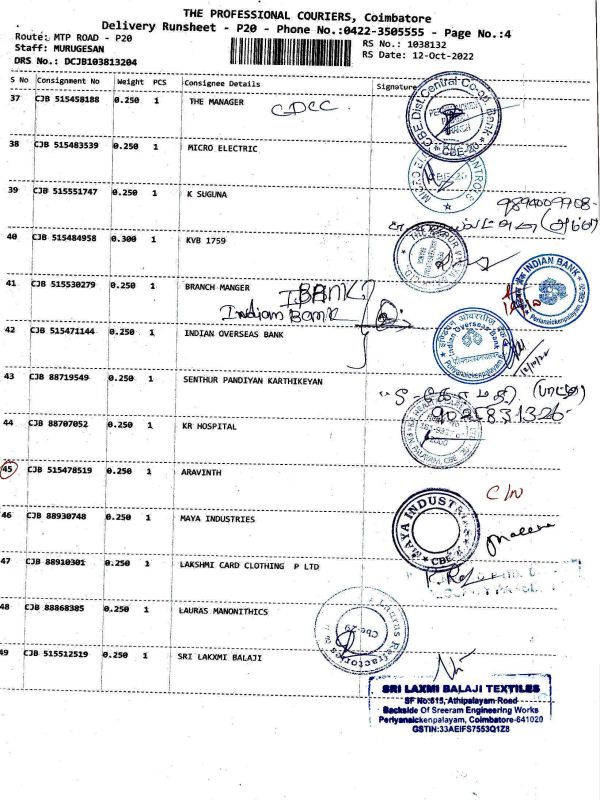 THE PROFESSIONAL COURIERS, Coimbatore
Delivery Runsheet - P20 - Phone No.:0422-3505555 - Page No.:4
Route: MTP ROAD - P20
Staff: MURUGESAN
DRS No.: DCJB103813204
RS No.: 1038132
RS Date: 12-Oct-2022
S No Consignment No Weight PCS Consignee Details Signature
37 CJB 515458188 0.250 1 THE MANAGER CDCC
CBE Dist. Central Co-op Bank
CBE-20
38 CJB 515483539 0.250 1 MICRO ELECTRIC
CBE-20
39 CJB 515551747 0.250 1 K SUGUNA
9894009908-
40 CJB 515484958 0.300 1 KVB 1759
41 CJB 515530279 0.250 1 BRANCH MANGER
Indian Bank
INDIAN BANK
Periyanaickenpalayam, CBE-20
42 CJB 515471144 0.250 1 INDIAN OVERSEAS BANK
Indian Overseas Bank
12/10/22
43 CJB 88719549 0.250 1 SENTHUR PANDIYAN KARTHIKEYAN
44 CJB 88707052 0.250 1 KR HOSPITAL
45 CJB 515478519 0.250 1 ARAVINTH
46 CJB 88930748 0.250 1 MAYA INDUSTRIES
MAYA INDUSTRIES
CBE
47 CJB 88910301 0.250 1 LAKSHMI CARD CLOTHING P LTD
48 CJB 88868385 0.250 1 LAURAS MANONITHICS
Lauras Refractories
Cbe-29
49 CJB 515512519 0.250 1 SRI LAKXMI BALAJI
SRI LAXMI BALAJI TEXTILES
SF No:615, Athipalayam Road
Backside Of Sreeram Engineering Works
Periyanaickenpalayam, Coimbatore-641020
GSTIN:33AEIFS7553Q1Z8